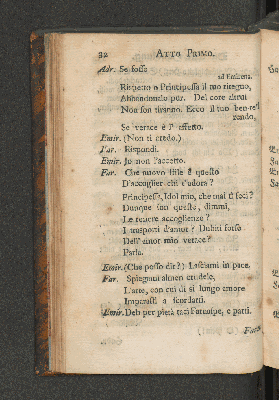 32 ATTO PRIMO.
Adr. Se fosse
ad Emirena.
Rispetto o Principessa il tuo ritegno,
Abbandonalo pur. Del core altrui
Non son tiranno. Ecco il tuo ben: te'l
rendo,
Se verace è l' affetto.
Emir. (Non ti credo.)
Far. Rispondi.
Emir. Io non l'accetto.
Far. Che nuovo stile è questo
D'accoglier chi t'adora?
Principessa, Idol mio, che mai ti feci?
Dunque son queste, dimmi,
Le tenere accoglienze?
I trasporti d'amor? Dubiti forse
Dell' amor mio verace?
Parla.
Emir. (Che posso dir?) Lasciami in pace.
Far. Spiegami almen crudele,
L'arte, con cui di sì lungo amore
Imparasti a scordarti.
Emir. Deh per pietà taci Farnaspe, e parti.